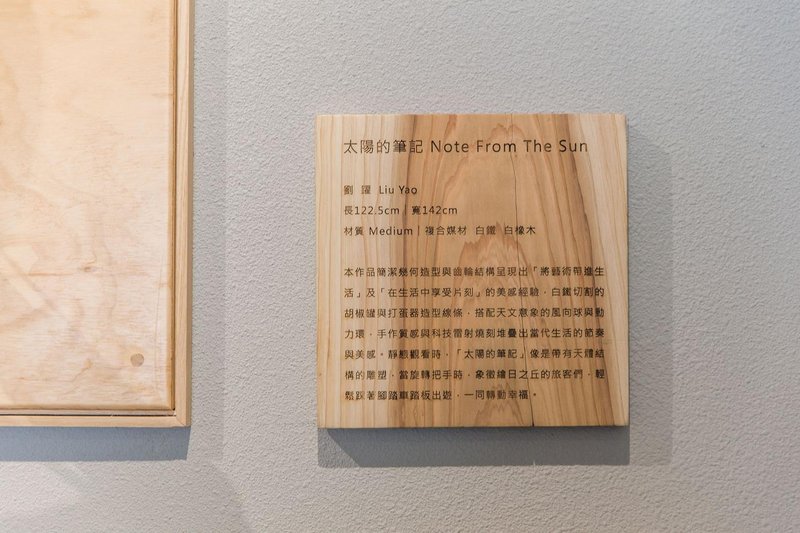 太陽的筆記 Note From The Sun
劉 躍 Liu Yao
長122.5cm｜寬142cm
材質 Medium｜複合媒材 白鐵 白橡木
本作品簡潔幾何造型與齒輪結構呈現出「將藝術帶進生
活」及「在生活中享受片刻」的美感經驗，白鐵切割的
胡椒罐與打蛋器造型線條，搭配天文意象的風向球與動
力環，手作質感與科技雷射燒刻堆疊出當代生活的節奏
與美感。靜態觀看時，「太陽的筆記」像是帶有天體結
構的雕塑，當旋轉把手時，象徵繪日之丘的旅客們，輕
鬆踩著腳踏車踏板出遊，一同轉動幸福。